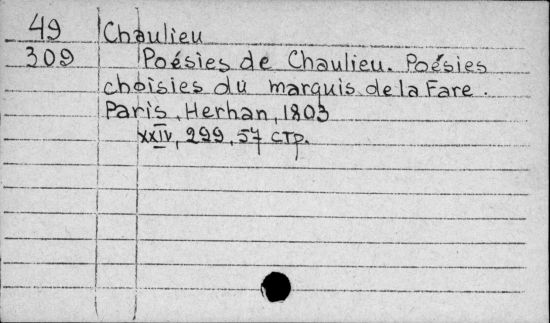 49 Chaulieu
309 Poésies de Chaulieu. Poésies
choisies du marquis de la Fare.
Paris, Herhan, 1803
XXIV, 299, 57 стр.